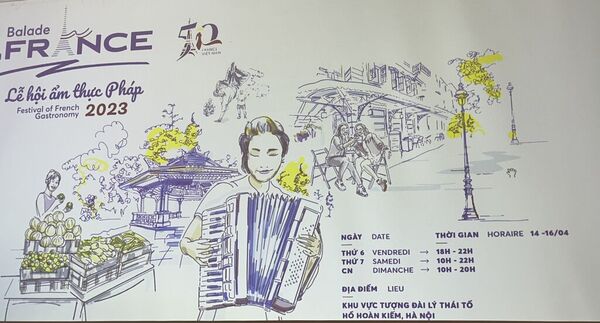 Balade
FRANCE
Lễ hội ẩm thực Pháp
Festival of French
Gastronomy 2023
NGÀY DATE THỜI GIAN HORAIRE 14 -16/04
THỨ 6 VENDREDI → 18H - 22H
THỨ 7 SAMEDI → 10H - 22H
CN DIMANCHE → 10H - 20H
ĐỊA ĐIỂM LIEU
KHU VỰC TƯỢNG ĐÀI LÝ THÁI TỔ
HỒ HOÀN KIẾM, HÀ NỘI